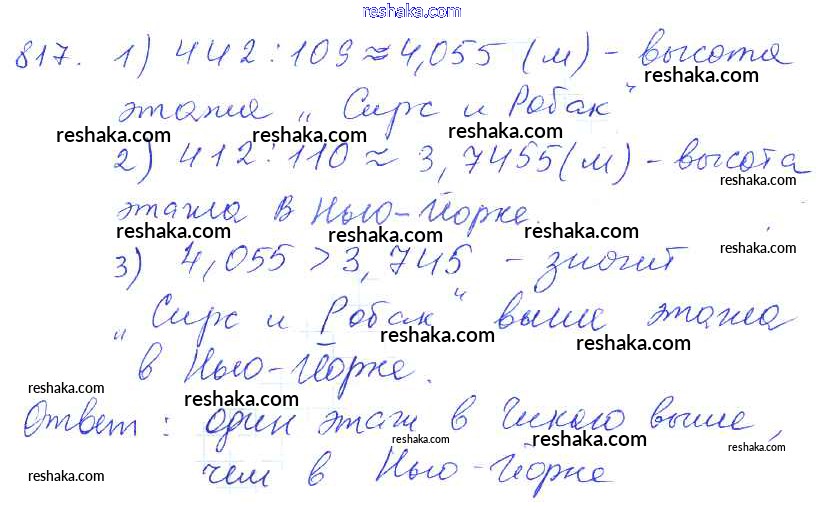 reshaka.com
817. 1) 442 : 109 ≈ 4,055 (м) - высота
reshaka.com
этажа „ Сирс и Робак"
reshaka.com reshaka.com reshaka.com
2) 412 : 110 ≈ 3,7455 (м) - высота
reshaka.com
этажа в Нью-Йорке.
reshaka.com reshaka.com reshaka.com
3) 4,055 > 3,745 - значит
reshaka.com
„ Сирс и Робак" выше этажа
reshaka.com reshaka.com
в Нью-Йорке.
reshaka.com reshaka.com
Ответ : один этаж в Чикаго выше,
reshaka.com reshaka.com reshaka.com reshaka.com
чем в Нью-Йорке
reshaka.com